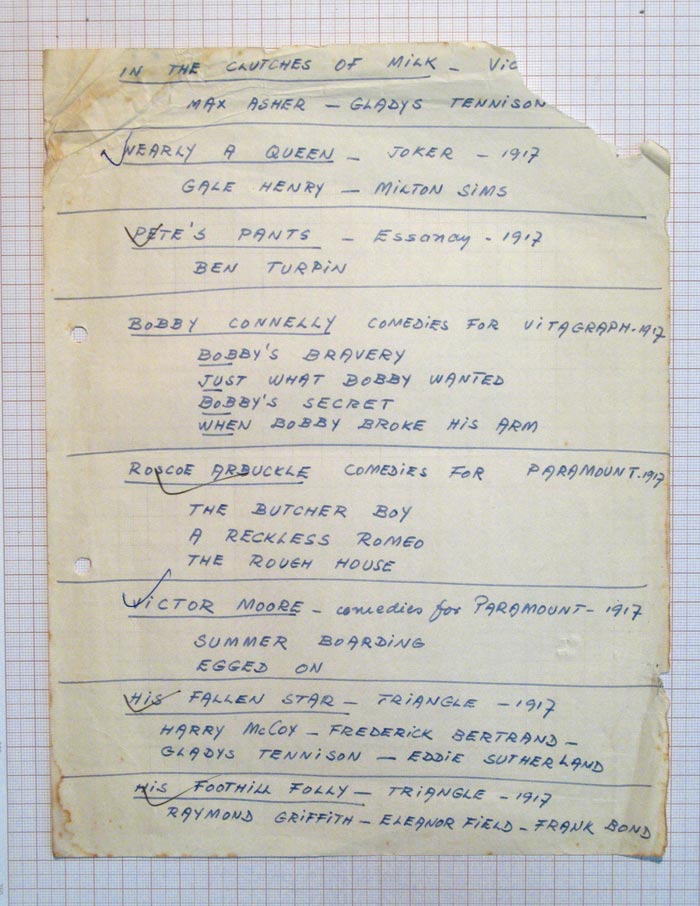 IN THE CLUTCHES OF MILK – Vic
MAX ASHER – GLADYS TENNISON
NEARLY A QUEEN – JOKER – 1917
GALE HENRY – MILTON SIMS
PETE'S PANTS – Essanay - 1917
BEN TURPIN
BOBBY CONNELLY COMEDIES FOR VITAGRAPH - 1917
BOBBY'S BRAVERY
JUST WHAT BOBBY WANTED
BOBBY'S SECRET
WHEN BOBBY BROKE HIS ARM
ROSCOE ARBUCKLE COMEDIES FOR PARAMOUNT - 1917
THE BUTCHER BOY
A RECKLESS ROMEO
THE ROUGH HOUSE
VICTOR MOORE – comedies for PARAMOUNT – 1917
SUMMER BOARDING
EGGED ON
HIS FALLEN STAR – TRIANGLE – 1917
HARRY McCOY – FREDERICK BERTRAND –
GLADYS TENNISON – EDDIE SUTHERLAND
HIS FOOTHILL FOLLY – TRIANGLE – 1917
RAYMOND GRIFFITH – ELEANOR FIELD – FRANK BOND